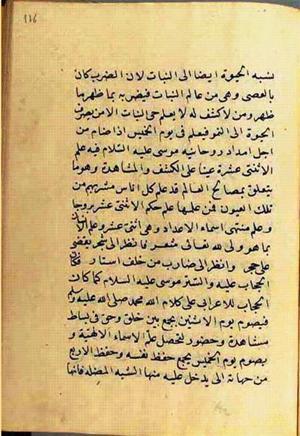 116
نسبه الحيوة ايضا الى النبات لان الضرب كان
بالعصى وهى من عالم النبات فيضربه بما ظهر بها
ظهر ومن لا كشف له لا يعلم حى النبات الا من يصرف
الحيوة الى النمو فيعلم فى يوم الخميس اذا صام من
اجل امداد روحانية موسى عليه السلام فيه علم
الاثنتى عشرة عينا على الكشف والمشاهدة وهو ما
يتعلق بمصالح العالم قد علم كل اناس مشربهم من
تلك العيون فمن علمها علم حكم الاثنى عشر برجا
وعلم منتهى اسماء الاعداد وهى اثنى عشر وعلم الانسان
بما هو ولى لله تعالى شعر فانظر الى شجر يقضى
على حجر وانظر الى ضارب من خلف استار فكان
الحجاب عليه والستر موسى عليه السلام كما كان
الحجاب للاعرابى على كلام الله محمد صلى الله عليه وسلم
فيصوم يوم الاثنين يجمع بين خلق وحق فى بساط
مشاهدة وحضور لتحصل علم الاسماء الالهية و
يصوم يوم الخميس يجمع حفظ نفسه وحفظ الاربع
من جهاته التى يدخل عليه منها الشبه المضله فانها